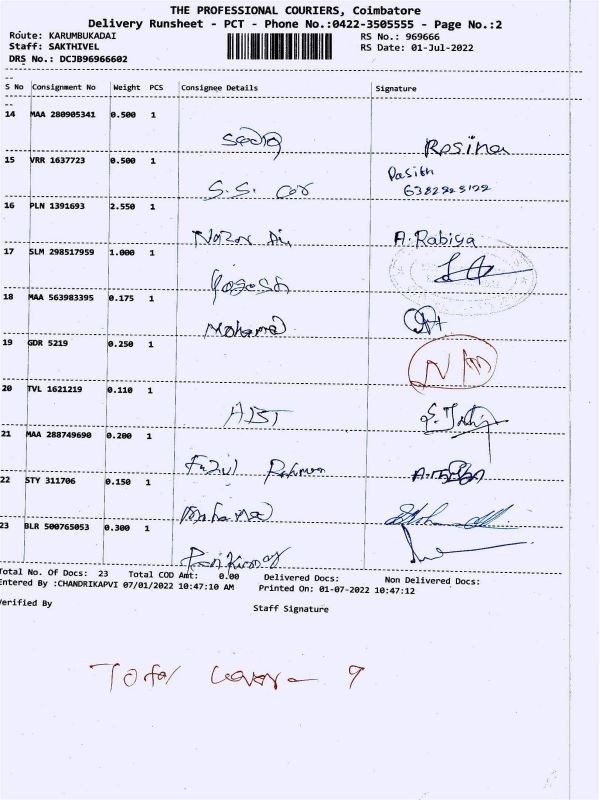 THE PROFESSIONAL COURIERS, Coimbatore
Delivery Runsheet - PCT - Phone No.:0422-3505555 - Page No.:2
Route: KARUMBUKADAI RS No.: 969666
Staff: SAKTHIVEL RS Date: 01-Jul-2022
DRS No.: DCJB96966602
S No Consignment No Weight PCS Consignee Details Signature
14 MAA 280905341 0.500 1
Sadiq Rosina
15 VRR 1637723 0.500 1
S.S. Car
16 PLN 1391693 2.550 1
A.Rabiya
17 SLM 298517959 1.000 1
18 MAA 563983395 0.175 1
Mohamed
19 GDR 5219 0.250 1
NM
20 TVL 1621219 0.110 1
ABT
21 MAA 288749690 0.200 1
Fazil Rahman
22 STY 311706 0.150 1
Mohamed
23 BLR 500765053 0.300 1
Total No. Of Docs: 23 Total COD Amt: 0.00 Delivered Docs: Non Delivered Docs:
Entered By :CHANDRIKAPVI 07/01/2022 10:47:10 AM Printed On: 01-07-2022 10:47:12
Verified By
Staff Signature
Total cover - 9